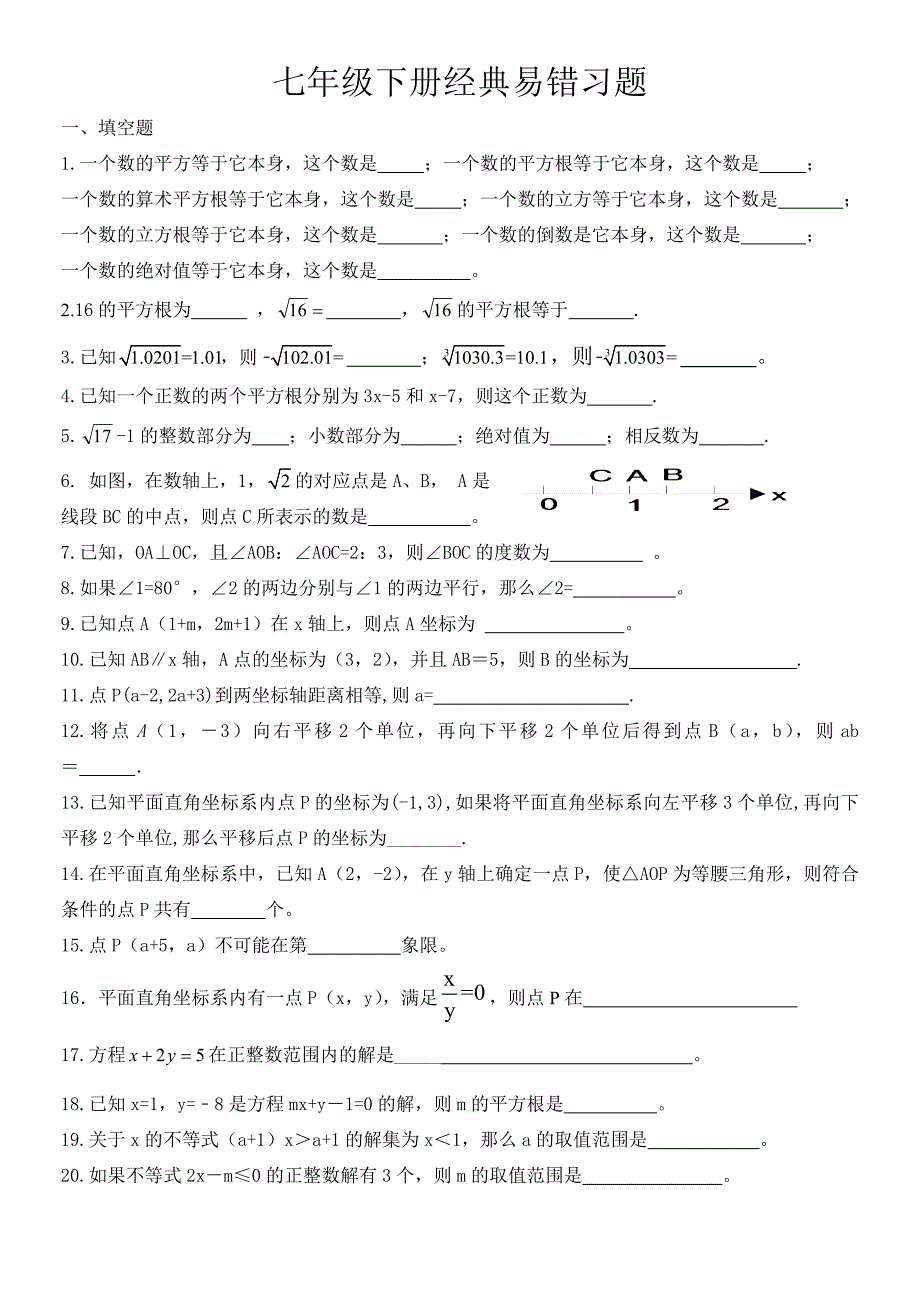 七年级下册经典易错习题
一、填空题
1.一个数的平方等于它本身，这个数是_____；一个数的平方根等于它本身，这个数是_____；
一个数的算术平方根等于它本身，这个数是_____；一个数的立方等于它本身，这个数是_______；
一个数的立方根等于它本身，这个数是_______；一个数的倒数是它本身，这个数是______；
一个数的绝对值等于它本身，这个数是__________。
2.16 的平方根为______ ，√16 =________，√16 的平方根等于_______.
3.已知√1.0201=1.01，则 -√102.01=________；∛1030.3=10.1，则-∛1.0303=________。
4.已知一个正数的两个平方根分别为 3x-5 和 x-7，则这个正数为_______.
5.√17 -1 的整数部分为____；小数部分为______；绝对值为______；相反数为_______.
6. 如图，在数轴上，1，√2 的对应点是 A、B， A 是
线段 BC 的中点，则点 C 所表示的数是___________。
C A B
0 1 2 x
7.已知，OA⊥OC，且∠AOB：∠AOC=2：3，则∠BOC 的度数为__________ 。
8.如果∠1=80°，∠2 的两边分别与∠1 的两边平行，那么∠2=___________。
9.已知点 A（1+m，2m+1）在 x 轴上，则点 A 坐标为 _______________。
10.已知 AB∥x 轴，A 点的坐标为（3，2），并且 AB＝5，则 B 的坐标为__________________.
11.点 P(a-2,2a+3)到两坐标轴距离相等,则 a=_____________________.
12.将点 A（1，－3）向右平移 2 个单位，再向下平移 2 个单位后得到点 B（a，b），则 ab
＝______.
13.已知平面直角坐标系内点 P 的坐标为(-1,3),如果将平面直角坐标系向左平移 3 个单位,再向下
平移 2 个单位,那么平移后点 P 的坐标为________.
14.在平面直角坐标系中，已知 A（2，-2），在 y 轴上确定一点 P，使△AOP 为等腰三角形，则符合
条件的点 P 共有________个。
15.点 P（a+5，a）不可能在第__________象限。
16．平面直角坐标系内有一点 P（x，y），满足x/y=0，则点 P 在_______________________
17.方程x+2y=5在正整数范围内的解是________________________________。
18.已知 x=1，y=﹣8 是方程 mx+y－1=0 的解，则 m 的平方根是__________。
19.关于 x 的不等式（a+1）x＞a+1 的解集为 x＜1，那么 a 的取值范围是____________。
20.如果不等式 2x－m≤0 的正整数解有 3 个，则 m 的取值范围是_______________。